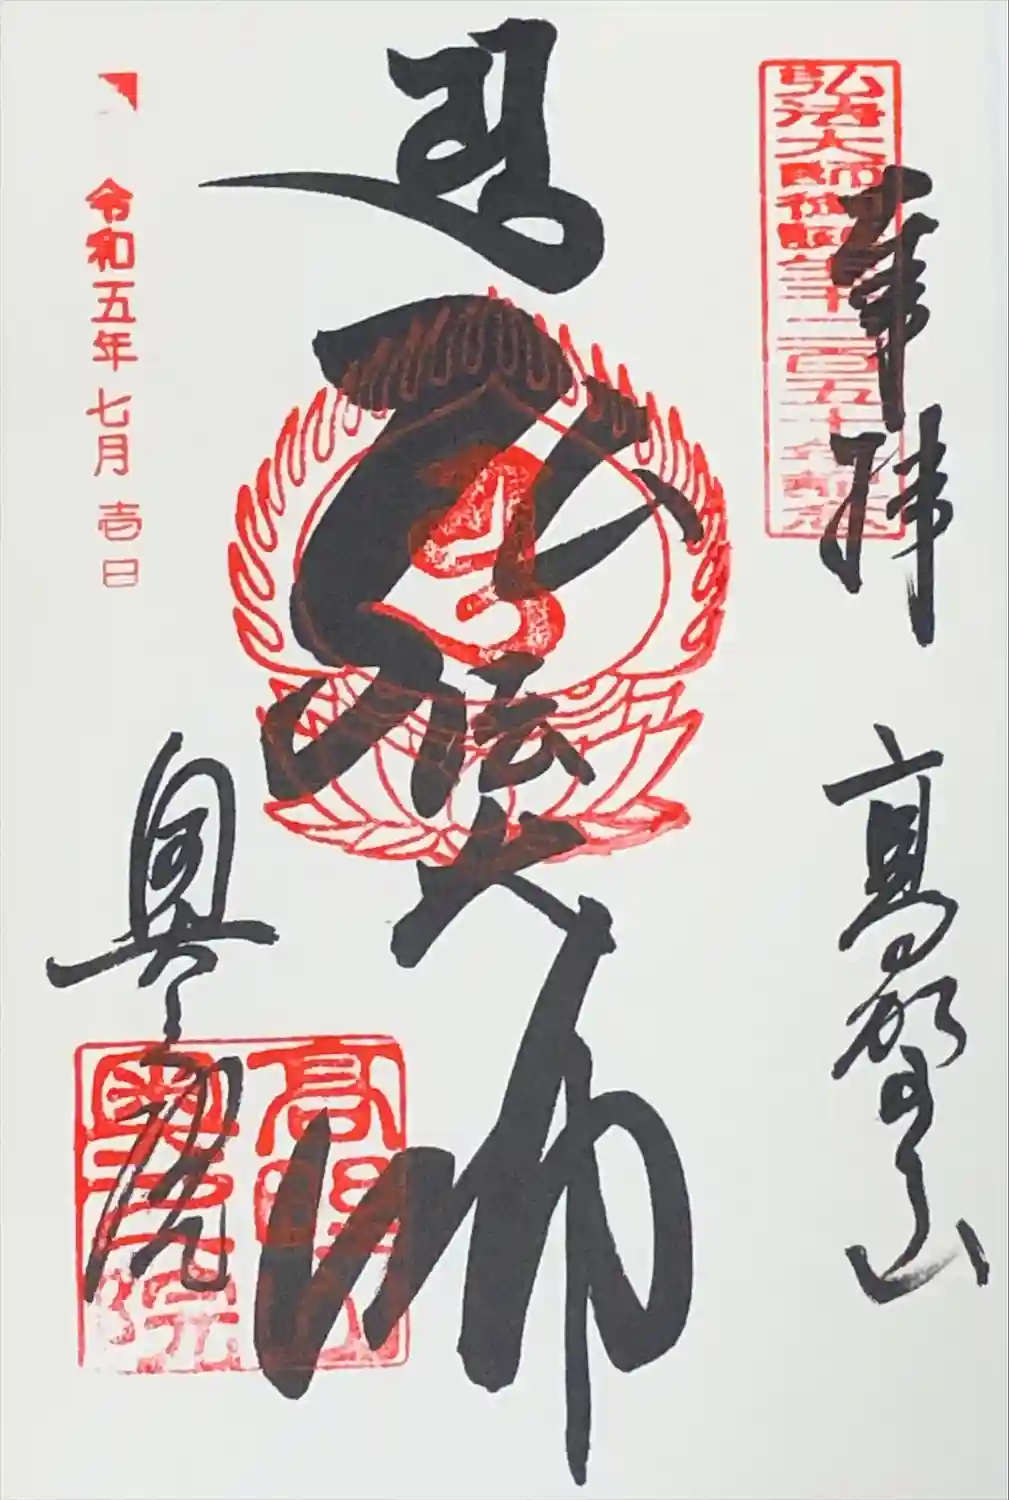 弘法大師御誕生千二百五十年記念
奉拝
高野山
弘法大師
奥之院
高野山
奥之院
令和五年七月壱日